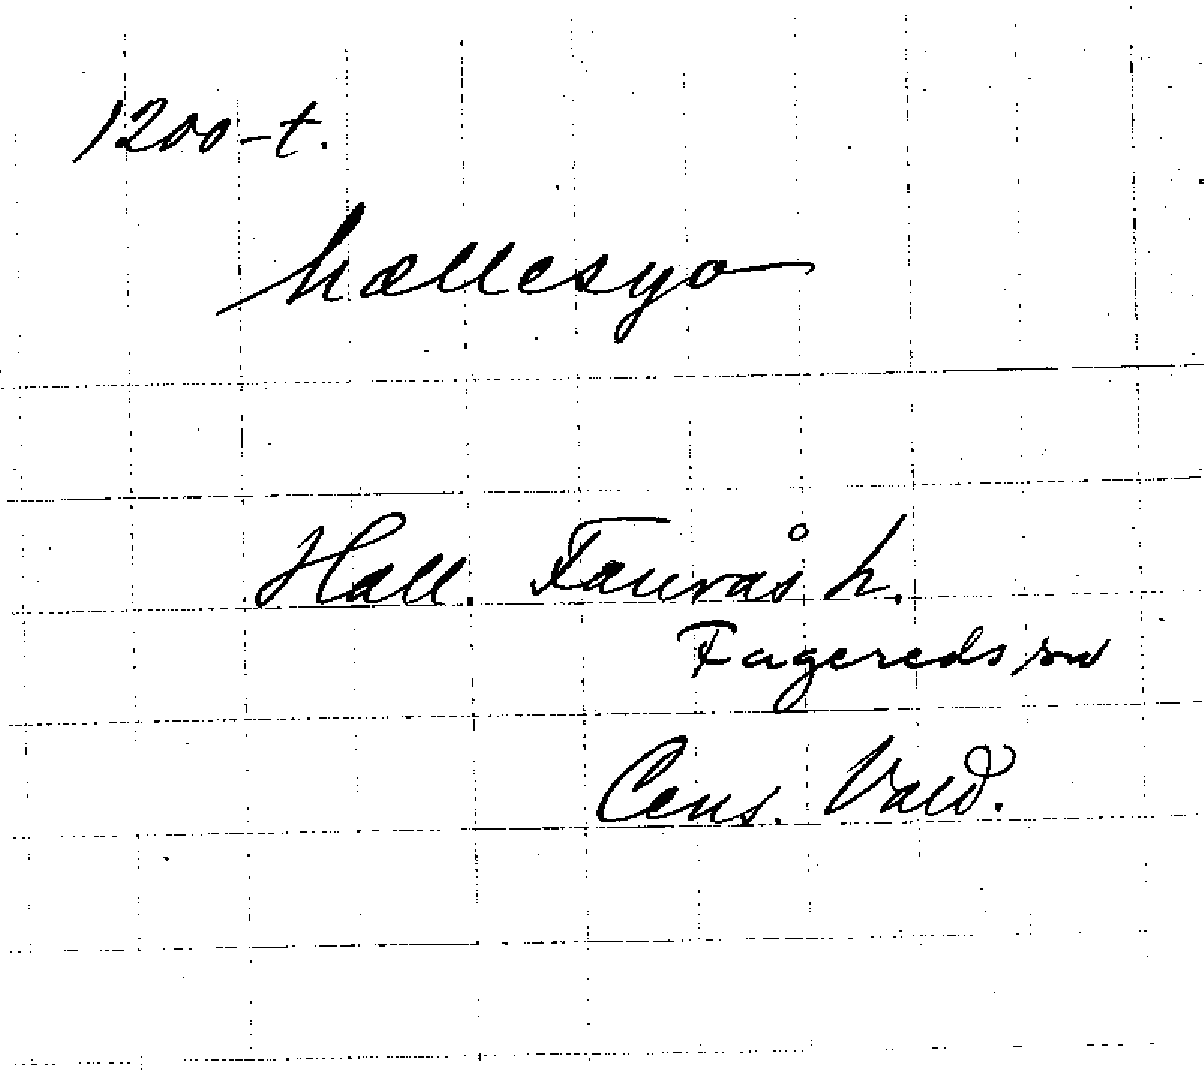 1200-t.
hællesyo
Hall. Faurås h.
Fagereds sn
Cens. Vald.